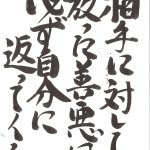 相手に対して
放つた善悪は
必ず自分に
返ってくる